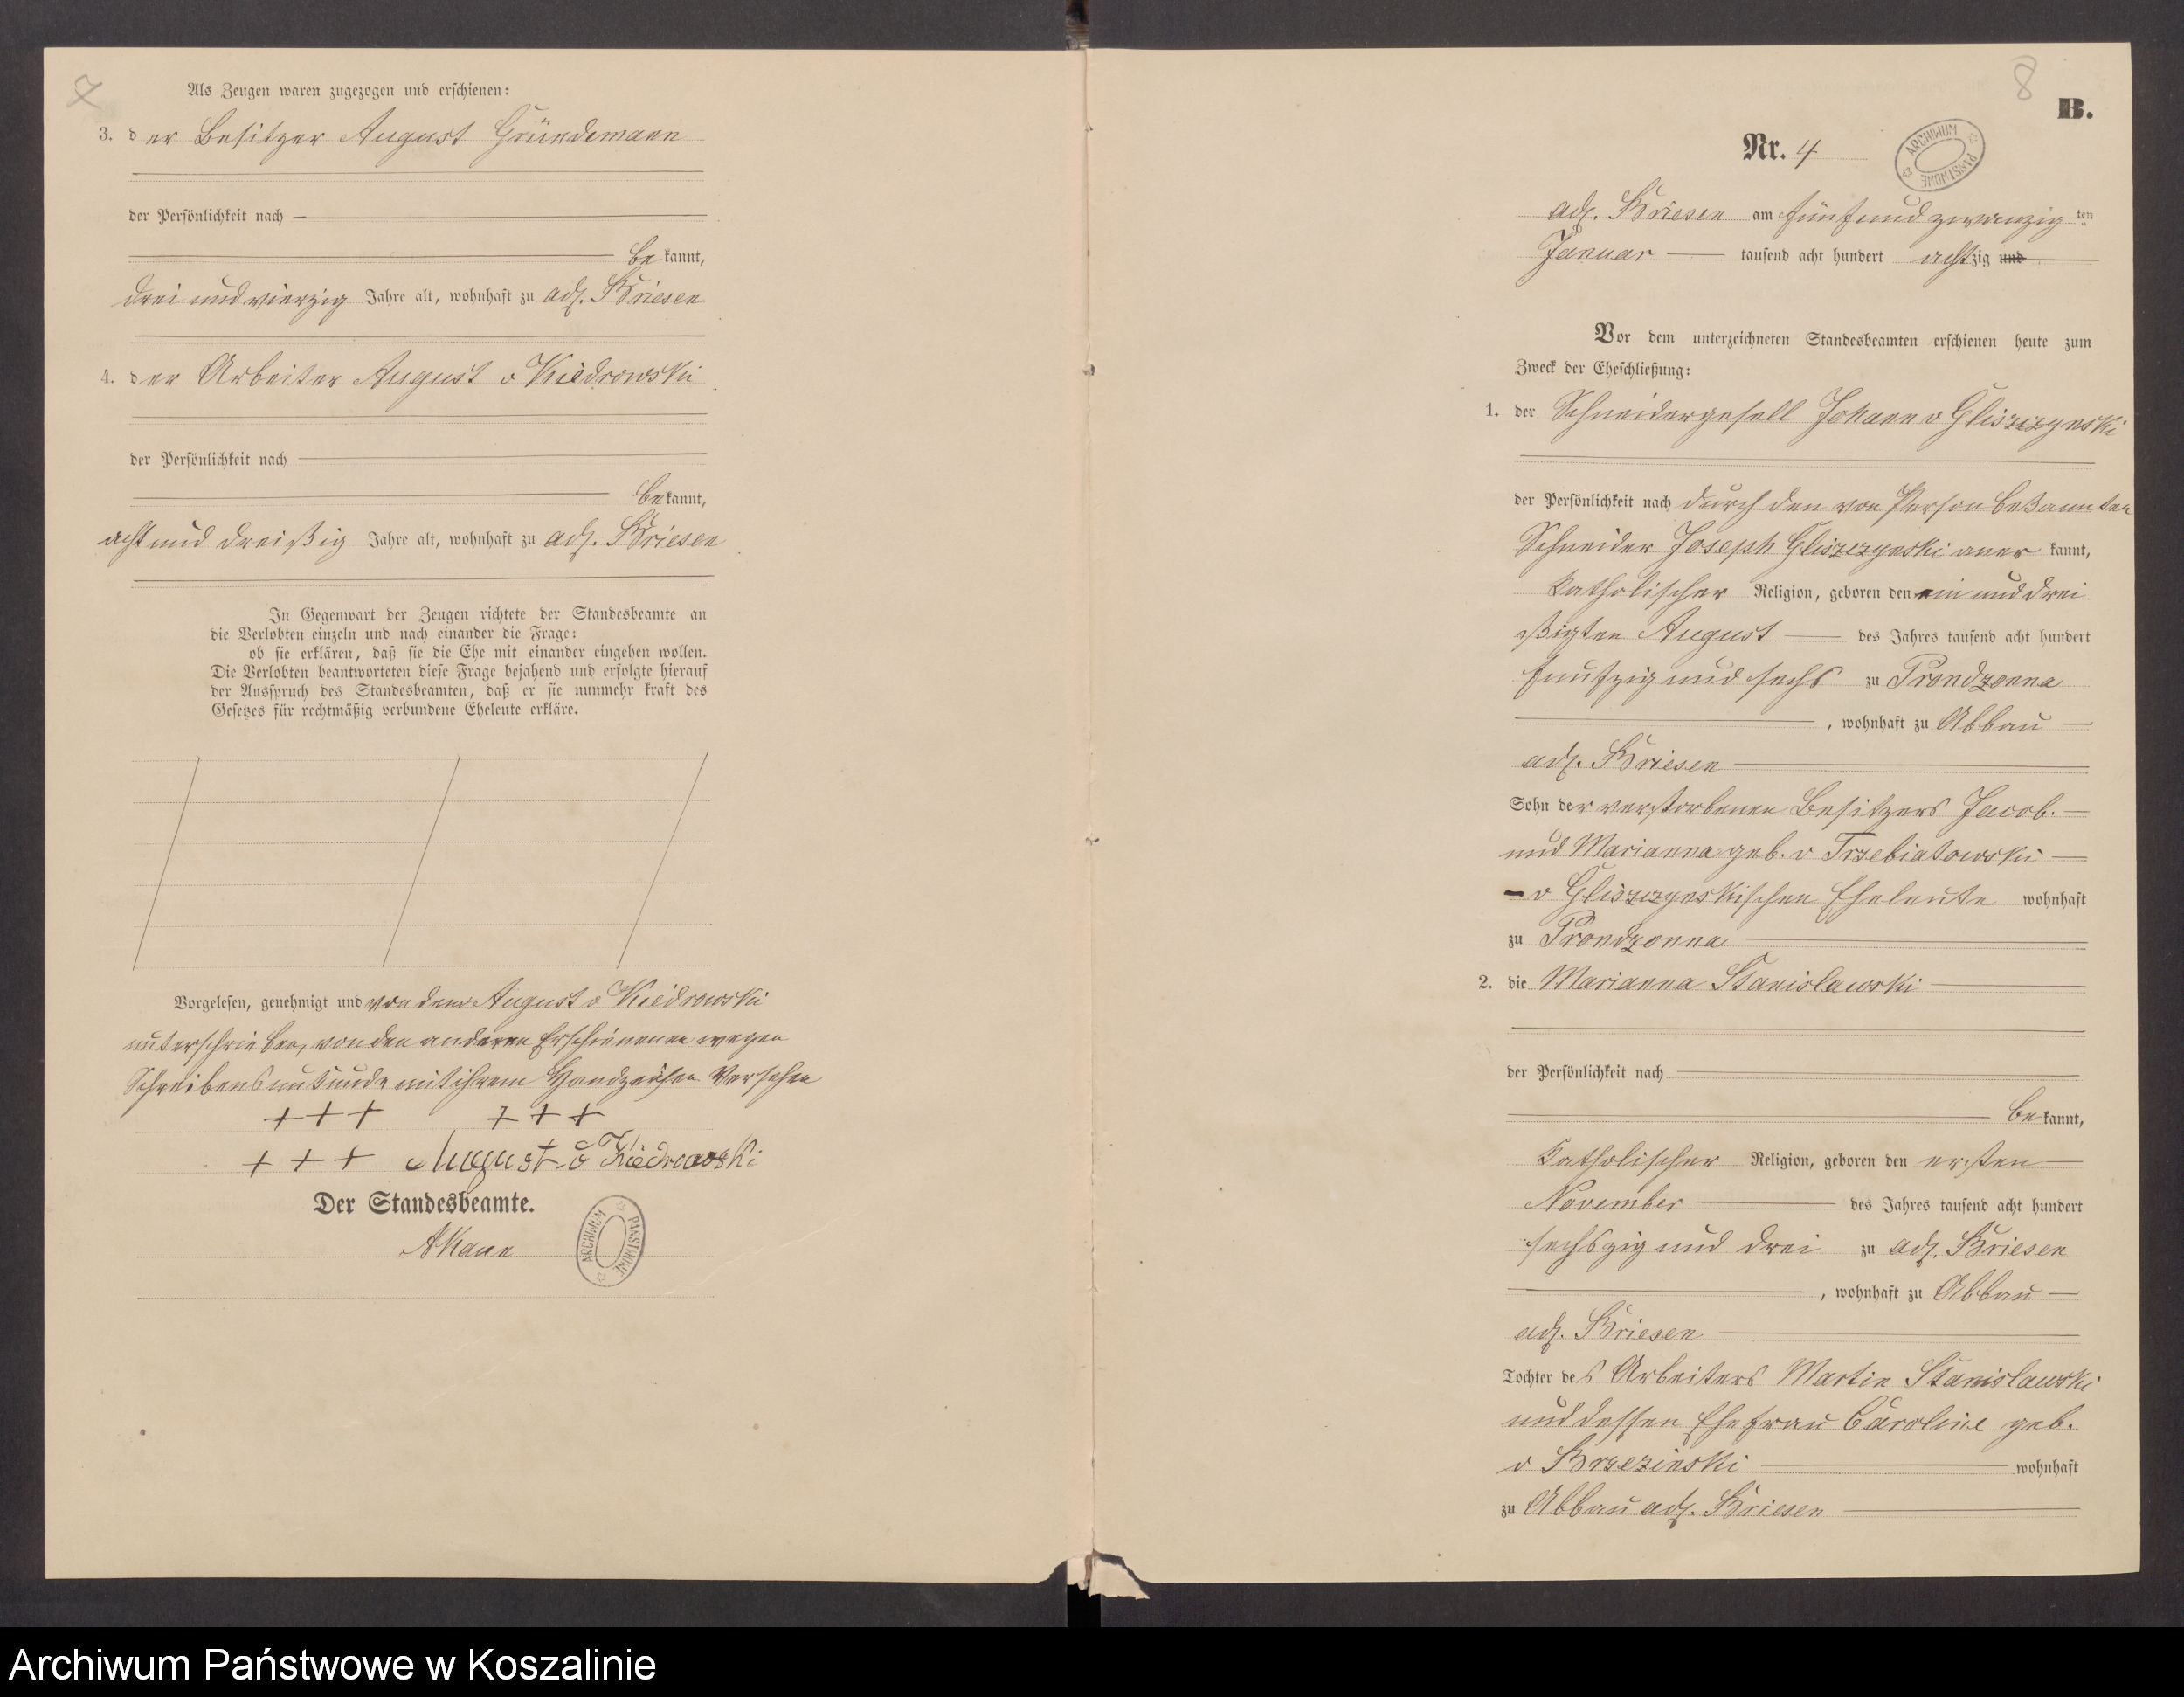 7
Als Zeugen waren zugezogen und erschienen:
3. der Besitzer August Gründemann
der Persönlichkeit nach
bekannt,
drei und vierzig Jahre alt, wohnhaft zu adl. Briesen
4. der Arbeiter August v Kiedrowski
der Persönlichkeit nach
bekannt,
acht und dreißig Jahre alt, wohnhaft zu adl. Briesen
In Gegenwart der Zeugen richtete der Standesbeamte an
die Verlobten einzeln und nach einander die Frage:
ob sie erklären, daß sie die Ehe mit einander eingehen wollen.
Die Verlobten beantworteten diese Frage bejahend und erfolgte hierauf
der Ausspruch des Standesbeamten, daß er sie nunmehr kraft des
Gesetzes für rechtmäßig verbundene Eheleute erkläre.
Vorgelesen, genehmigt und von dem August v Kiedrowski
unterschrieben, von den anderen Erschienenen wegen
Schreibensunkunde mit ihrem Handzeichen versehen
+++ +++
+++ August v Kiedrowski
Der Standesbeamte.
ARCHIWUM PAŃSTWOWE
8
B.
Nr. 4
ARCHIWUM PAŃSTWOWE
adl. Briesen am fünf und zwanzig ten
Januar tausend acht hundert achtzig und
Vor dem unterzeichneten Standesbeamten erschienen heute zum
Zweck der Eheschließung:
1. der Schneidergesell Johann v Gliszczynski
der Persönlichkeit nach durch den von Person bekannten
Schneider Joseph Gliszczynski anerkannt,
katholischer Religion, geboren den ein und drei
ßigten August des Jahres tausend acht hundert
funfzig und sechs zu Prondzonna
, wohnhaft zu Abbau
adl. Briesen
Sohn der verstorbenen Besitzers Jacob.
und Marianna geb. v Trzebiatowski
v Gliszczynskischen Eheleute wohnhaft
zu Prondzonna
2. die Marianna Stanislawski
der Persönlichkeit nach
bekannt,
katholischer Religion, geboren den ersten
November des Jahres tausend acht hundert
sechszig und drei zu adl. Briesen
, wohnhaft zu Abbau
adl. Briesen
Tochter des Arbeiters Martin Stanislawski
und dessen Ehefrau Caroline geb.
v Brzezinski wohnhaft
zu Abbau adl. Briesen
Archiwum Państwowe w Koszalinie